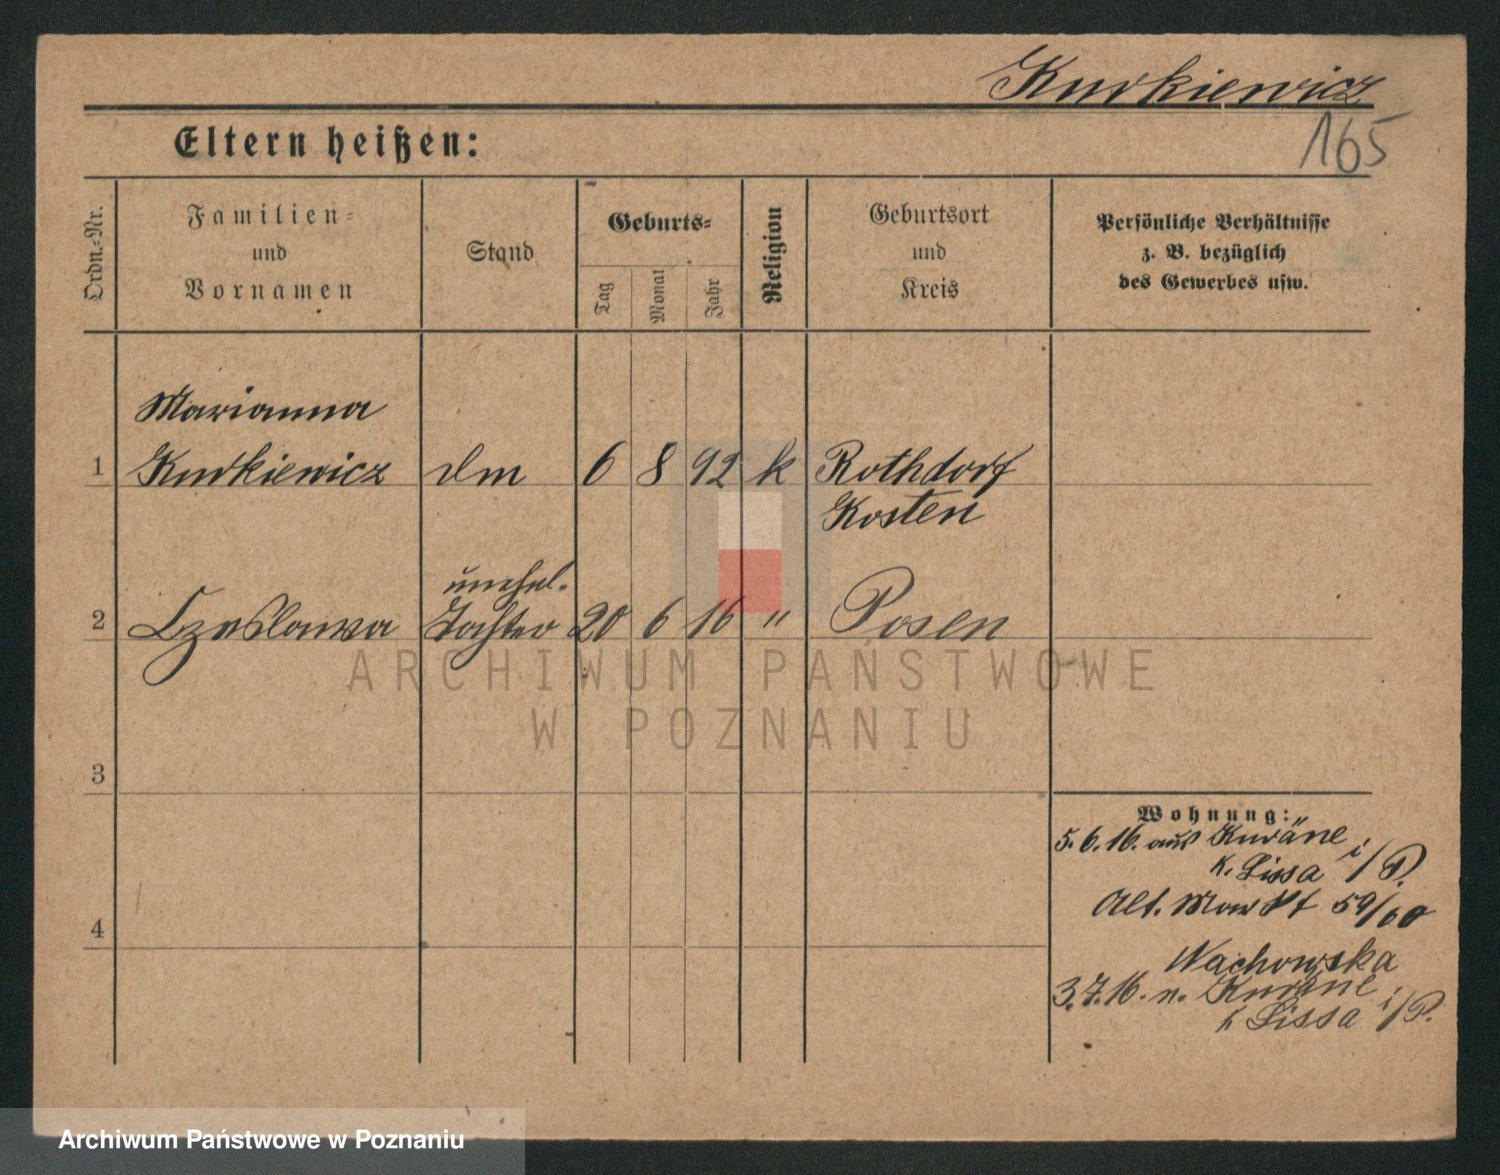 Kurkiewicz
165
Eltern heißen:
Ordn.-Nr.
Familien-
und
Vornamen
Stand
Geburts-
Tag
Monat
Jahr
Religion
Geburtsort
und
Kreis
Persönliche Verhältnisse
z. B. bezüglich
des Gewerbes usw.
Marianna
1 Kurkiewicz dm 6 8 92 k Rothdorf
Kosten
unehel.
2 Czeslawa Tochter 20 6 16 " Posen
ARCHIWUM PAŃSTWOWE
W POZNANIU
3
Wohnung:
5.6.16. aus Kuräne
K. Lissa i/P.
4
Alt. Markt 59/60
Wachowska
3.7.16. n. Kuräne
k Lissa i/P.
Archiwum Państwowe w Poznaniu